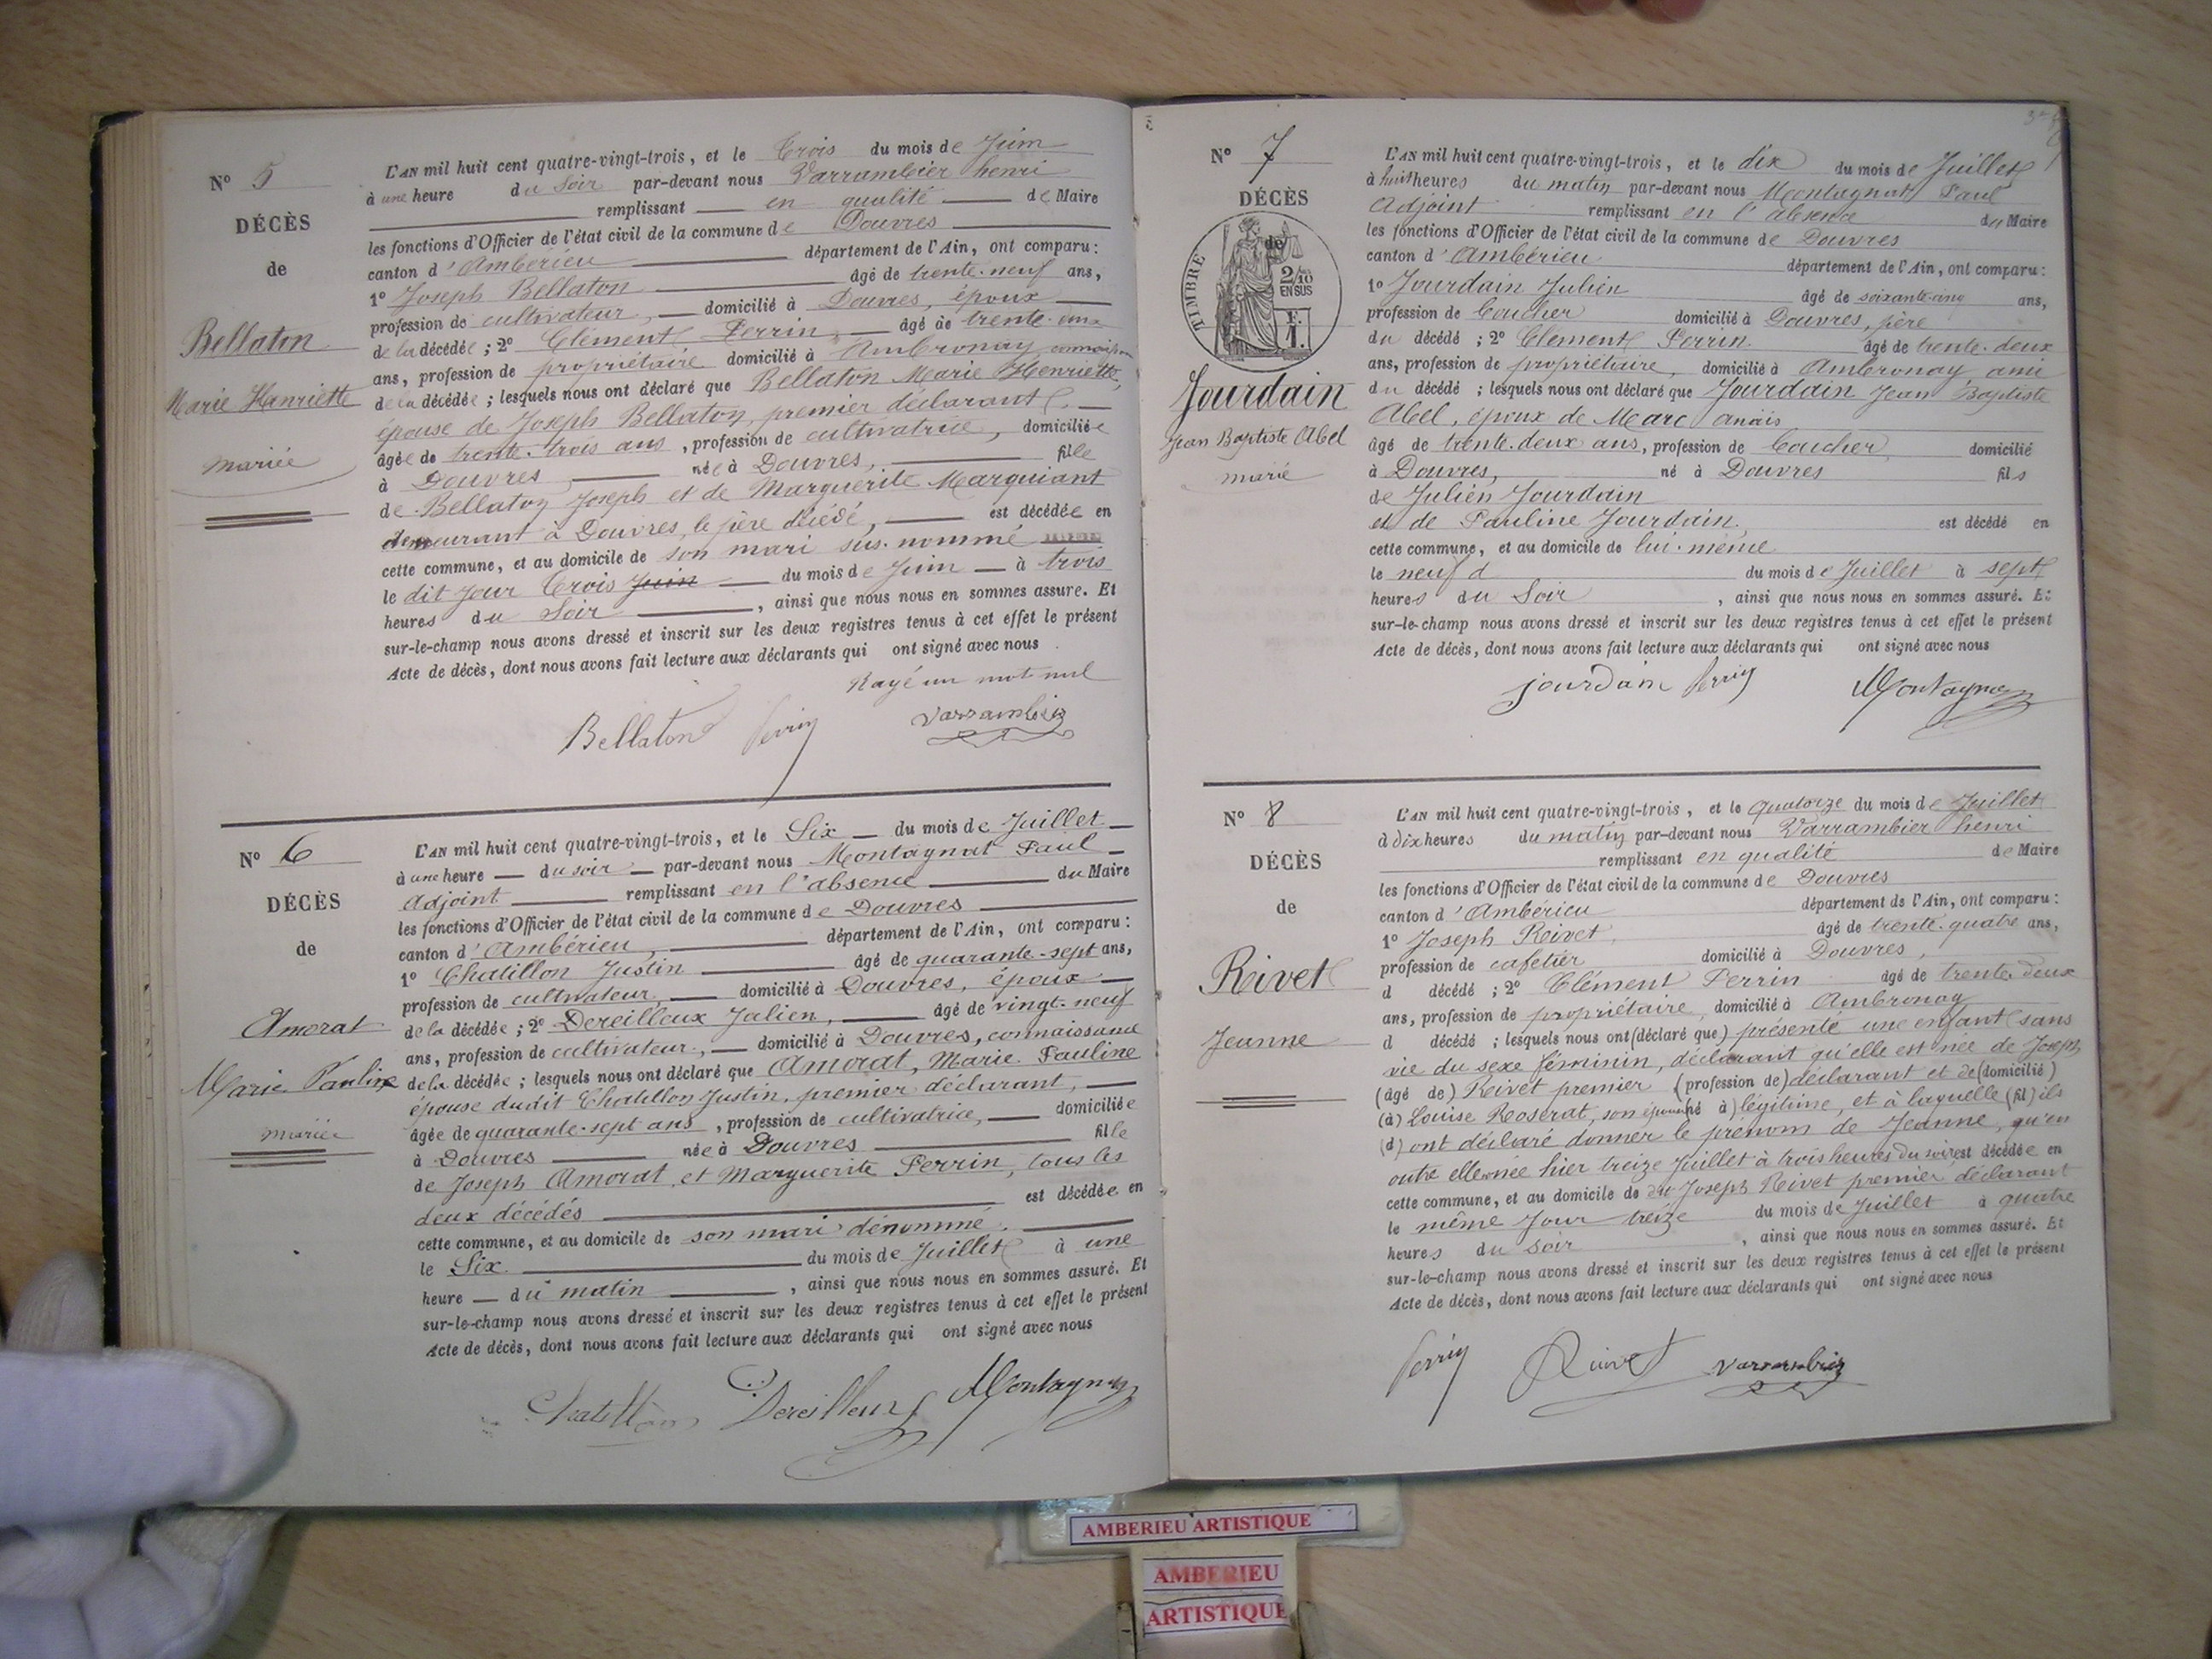 N° 5
DÉCÈS
de
Bellaton
Marie Henriette
mariée
L'AN mil huit cent quatre-vingt-trois, et le Trois du mois de Juin
à une heure du Soir par-devant nous Varrambier henri
remplissant en qualité de Maire
les fonctions d'Officier de l'état civil de la commune de Douvres
canton d'Ambérieu département de l'Ain, ont comparu :
1° Joseph Bellaton âgé de trente-neuf ans,
profession de cultivateur, domicilié à Douvres, époux
de la décédée ; 2° Clément Perrin, âgé de trente-deux
ans, profession de propriétaire domicilié à Ambronay
de la décédée ; lesquels nous ont déclaré que Bellaton Marie Henriette,
épouse de Joseph Bellaton, premier déclarant,
âgée de trente-trois ans, profession de cultivatrice, domiciliée
à Douvres née à Douvres, fille
de Bellaton Joseph et de Marguerite Marquiant
demeurant à Douvres, le père décédé, est décédée en
cette commune, et au domicile de son mari sus-nommé
le dit jour Trois Juin du mois de Juin à trois
heures du Soir, ainsi que nous nous en sommes assuré. Et
sur-le-champ nous avons dressé et inscrit sur les deux registres tenus à cet effet le présent
Acte de décès, dont nous avons fait lecture aux déclarants qui ont signé avec nous
Rayé un mot nul
Bellaton Perrin Varrambier
N° 6
DÉCÈS
de
Amorat
Marie Pauline
mariée
L'AN mil huit cent quatre-vingt-trois, et le Six du mois de Juillet
à une heure du soir par-devant nous Montagnat Paul
Adjoint remplissant en l'absence du Maire
les fonctions d'Officier de l'état civil de la commune de Douvres
canton d'Ambérieu, département de l'Ain, ont comparu :
1° Chatillon Justin âgé de quarante-sept ans,
profession de cultivateur, domicilié à Douvres, époux
de la décédée ; 2° Dereilleux Julien, âgé de vingt-neuf
ans, profession de cultivateur, domicilié à Douvres, connaissance
de la décédée ; lesquels nous ont déclaré que Amorat, Marie Pauline
épouse dudit Chatillon Justin, premier déclarant,
âgée de quarante-sept ans, profession de cultivatrice, domiciliée
à Douvres née à Douvres fille
de Joseph Amorat, et Marguerite Perrin, tous les
deux décédés est décédée en
cette commune, et au domicile de son mari dénommé.
le Six du mois de Juillet à une
heure du matin, ainsi que nous nous en sommes assuré. Et
sur-le-champ nous avons dressé et inscrit sur les deux registres tenus à cet effet le présent
Acte de décès, dont nous avons fait lecture aux déclarants qui ont signé avec nous
Chatillon Dereilleux Montagnat
N° 7
DÉCÈS
de
TIMBRE
2/10
EN SUS
F.
1.
Jourdain
Jean Baptiste Abel
marié
L'AN mil huit cent quatre-vingt-trois, et le dix du mois de Juillet
à huit heures du matin par-devant nous Montagnat Paul
Adjoint remplissant en l'absence du Maire
les fonctions d'Officier de l'état civil de la commune de Douvres
canton d'Ambérieu département de l'Ain, ont comparu :
1° Jourdain Julien âgé de soixante-cinq ans,
profession de Coucher domicilié à Douvres, père
du décédé ; 2° Clément Perrin âgé de trente-deux
ans, profession de propriétaire, domicilié à Ambronay ami
du décédé ; lesquels nous ont déclaré que Jourdain Jean Baptiste
Abel, époux de Marc anaïs
âgé de trente-deux ans, profession de Coucher, domicilié
à Douvres, né à Douvres fils
de Julien Jourdain
et de Pauline Jourdain. est décédé en
cette commune, et au domicile de lui-même
le neuf d du mois de Juillet à sept
heures du Soir, ainsi que nous nous en sommes assuré. Et
sur-le-champ nous avons dressé et inscrit sur les deux registres tenus à cet effet le présent
Acte de décès, dont nous avons fait lecture aux déclarants qui ont signé avec nous
jourdain Perrin Montagnat
N° 8
DÉCÈS
de
Rivet
Jeanne
L'AN mil huit cent quatre-vingt-trois, et le quatorze du mois de Juillet
à dix heures du matin par-devant nous Varrambier henri
remplissant en qualité de Maire
les fonctions d'Officier de l'état civil de la commune de Douvres
canton d'Ambérieu département de l'Ain, ont comparu :
1° Joseph Rivet, âgé de trente-quatre ans,
profession de cafetier domicilié à Douvres,
d décédé ; 2° Clément Perrin âgé de trente-deux
ans, profession de propriétaire, domicilié à Ambronay
d décédé ; lesquels nous ont (déclaré que) présenté une enfant sans
vie du sexe féminin, déclarant qu'elle est née de Joseph
(âgé de) Rivet premier (profession de) déclarant et de (domicilié)
(à) Louise Roserat, son épouse (né à) légitime, et à laquelle (fil) ils
(d) ont déclaré donner le prénom de Jeanne, qu'en
outre elle née hier treize Juillet à trois heures du soir est décédée en
cette commune, et au domicile de du Joseph Rivet premier déclarant
le même jour treize du mois de Juillet à quatre
heures du soir, ainsi que nous nous en sommes assuré. Et
sur-le-champ nous avons dressé et inscrit sur les deux registres tenus à cet effet le présent
Acte de décès, dont nous avons fait lecture aux déclarants qui ont signé avec nous
Perrin Rivet Varrambier
AMBERIEU ARTISTIQUE
AMBERIEU
ARTISTIQUE